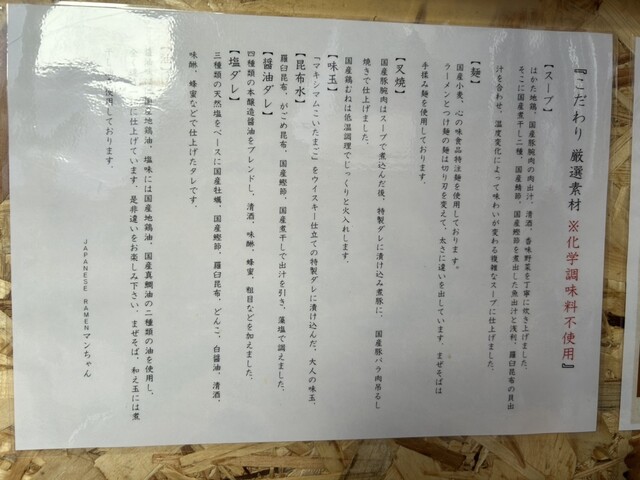 『こだわり 厳選素材 ※化学調味料不使用』
【スープ】
はかた地鶏、国産豚腕肉の肉出汁、清酒、香味野菜を丁寧に炊き上げました。
そこに国産煮干し二種、国産鯖節、国産鰹節を煮出した魚出汁と浅利、羅臼昆布の貝出
汁を合わせ、温度変化によって味わいが変わる複雑なスープに仕上げました。
【麺】
国産小麦、心の味食品特注麺を使用しております。
ラーメンとつけ麺の麺は切り刃を変えて、太さに違いを出しています。まぜそばは
手揉み麺を使用しております。
【叉焼】
国産豚腕肉はスープで煮込んだ後、特製ダレに漬け込み煮豚に、国産豚バラ肉吊るし
焼きで仕上げました。
国産鶏むねは低温調理でじっくりと火入れします。
【味玉】
「マキシマムこいたまご」をウイスキー仕立ての特製ダレに漬け込んだ、大人の味玉。
【昆布水】
羅臼昆布、がごめ昆布、国産鰹節、国産煮干しで出汁を引き、藻塩で調えました。
【醤油ダレ】
四種類の本醸造醤油をブレンドし、清酒、味醂、蜂蜜、粗目などを加えました。
【塩ダレ】
三種類の天然塩をベースに国産牡蠣、国産鰹節、羅臼昆布、どんこ、白醤油、清酒、
味醂、蜂蜜などで仕上げたタレです。
国産地鶏油、塩味には国産地鶏油、国産真鯛油の二種類の油を使用し、
に仕上げています。是非違いをお楽しみ下さい。まぜそば、和え玉には煮
使用しております。
JAPANESE RAMEN マンちゃん